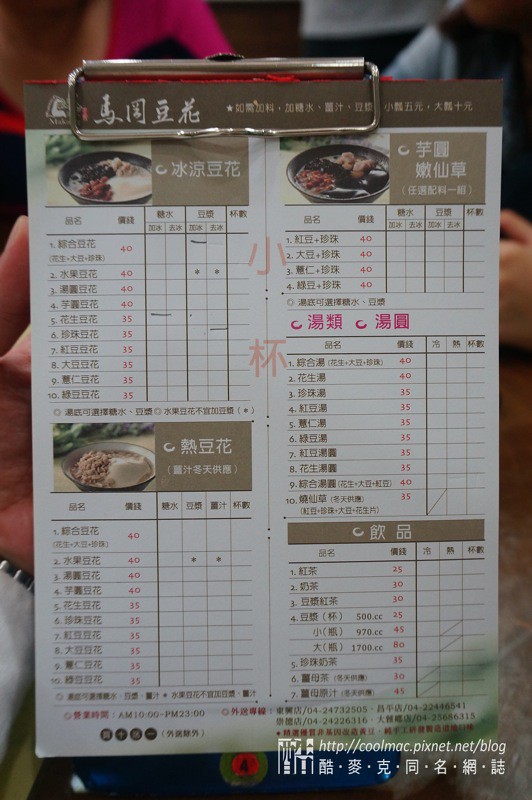 馬岡豆花
★如需加料，加糖水、薑汁、豆漿，小瓢五元，大瓢十元
冰涼豆花
品名 價錢 糖水 豆漿 杯數
加冰 去冰 加冰 去冰
1. 綜合豆花 40
(花生+大豆+珍珠)
2. 水果豆花 40 * *
3. 湯圓豆花 40
4. 芋圓豆花 40
5. 花生豆花 35
6. 珍珠豆花 35
7. 紅豆豆花 35
8. 大豆豆花 35
9. 薏仁豆花 35
10. 綠豆豆花 35
◎ 湯底可選擇糖水、豆漿 ◎ 水果豆花不宜加豆漿（*）
小杯
熱豆花
(薑汁冬天供應)
品名 價錢 糖水 豆漿 薑汁 杯數
1. 綜合豆花 40
(花生+大豆+珍珠)
2. 水果豆花 40 * *
3. 湯圓豆花 40
4. 芋圓豆花 40
5. 花生豆花 35
6. 珍珠豆花 35
7. 紅豆豆花 35
8. 大豆豆花 35
9. 薏仁豆花 35
10. 綠豆豆花 35
◎ 湯底可選擇糖水、豆漿、薑汁 * 水果豆花不宜加豆漿、薑汁
芋圓
嫩仙草
(任選配料一組)
品名 價錢 糖水 豆漿 杯數
加冰 去冰 加冰 去冰
1. 紅豆+珍珠 40
2. 大豆+珍珠 40
3. 薏仁+珍珠 40
4. 綠豆+珍珠 40
◎ 湯底可選擇糖水、豆漿
湯類 湯圓
品名 價錢 冷 熱 杯數
1. 綜合湯 (花生+大豆+珍珠) 40
2. 花生湯 40
3. 珍珠湯 35
4. 紅豆湯 35
5. 薏仁湯 35
6. 綠豆湯 35
7. 紅豆湯圓 35
8. 花生湯圓 35
9. 綜合湯圓 (花生+大豆+紅豆) 40
10. 燒仙草 (冬天供應) 35
(紅豆+珍珠+大豆+花生片)
飲品
品名 價錢 冷 熱 杯數
1. 紅茶 25
2. 奶茶 30
3. 豆漿紅茶 30
4. 豆漿（杯） 500.cc 25
小(瓶) 970.cc 45
大(瓶) 1700.cc 80
5. 珍珠奶茶 35
6. 薑母茶 (冬天供應) 30
7. 薑母原汁 (冬天供應) 45
◎營業時間：AM10:00~PM23:00
買十送一 (外送除外)
◎外送專線：東興店/04-24732505、昌平店/04-22446541
崇德店/04-24226316、大雅鄉店/04-25686315
http://coolmac.pixnet.net/blog
酷·麥·克·同·名·網·誌